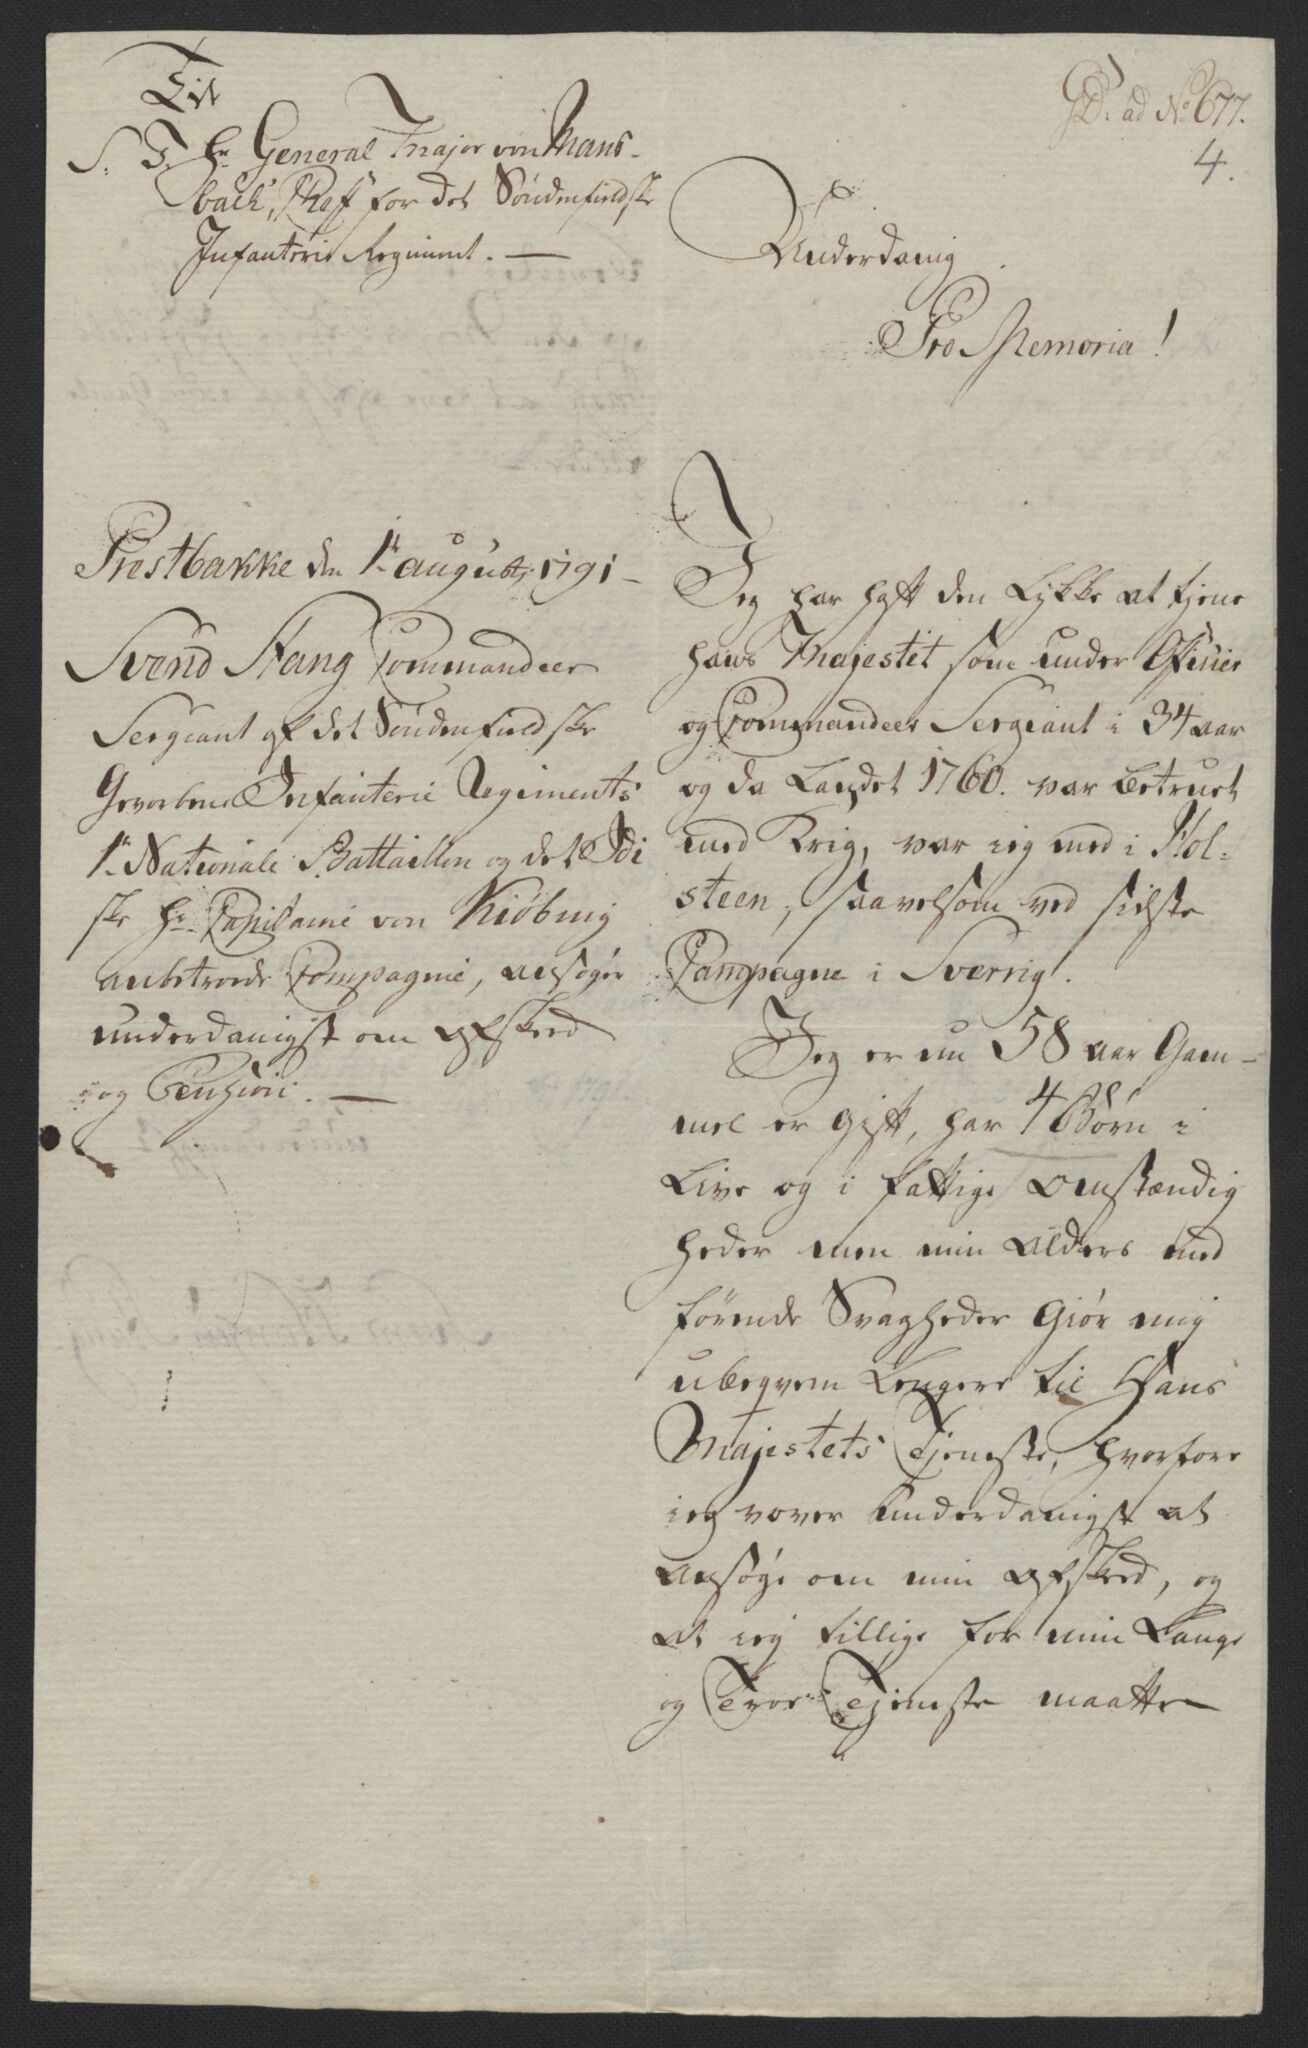 Til
S. T. Hr General Major von Mans-
bach, Chef for det Söndenfieldske
Infanterie Regiment. —
GD. ad No 677.
4.
Underdanig
Pro Memoria!
Prestbakke den 1te august 1791 –
Svend Stang Commandeer
Sergeant af det Söndenfieldske
Gevorbene Infanterie Regiments
1te Nationale Battaillon og det Idi
ske Hr Capitaine von Kiöbing
anbetroede Compagnie, ansøger
underdanigst om afskeed
og Pension. —
Jeg har haft den Lykke at tjene
hans Majestet som under Officier
og Commandeer Sergeant i 34 aar
og da Landet 1760. var betruet
med Krig, var ieg med i Hol-
steen, saavelsom ved sidste
Campagne i Sverrig.
Jeg er nu 58 aar Gam-
mel er gift, har 4 Børn i
Live og i fattige omstændig
heder men min Alders med
førende Svagheder Giør mig
ubeqvem Længere til Hans
Majestets Tjeneste, hvorfore
ieg vover underdanigst at
ansøge om min afskeed, og
at ieg tillige for min Lange
og Troe Tjeneste maatte